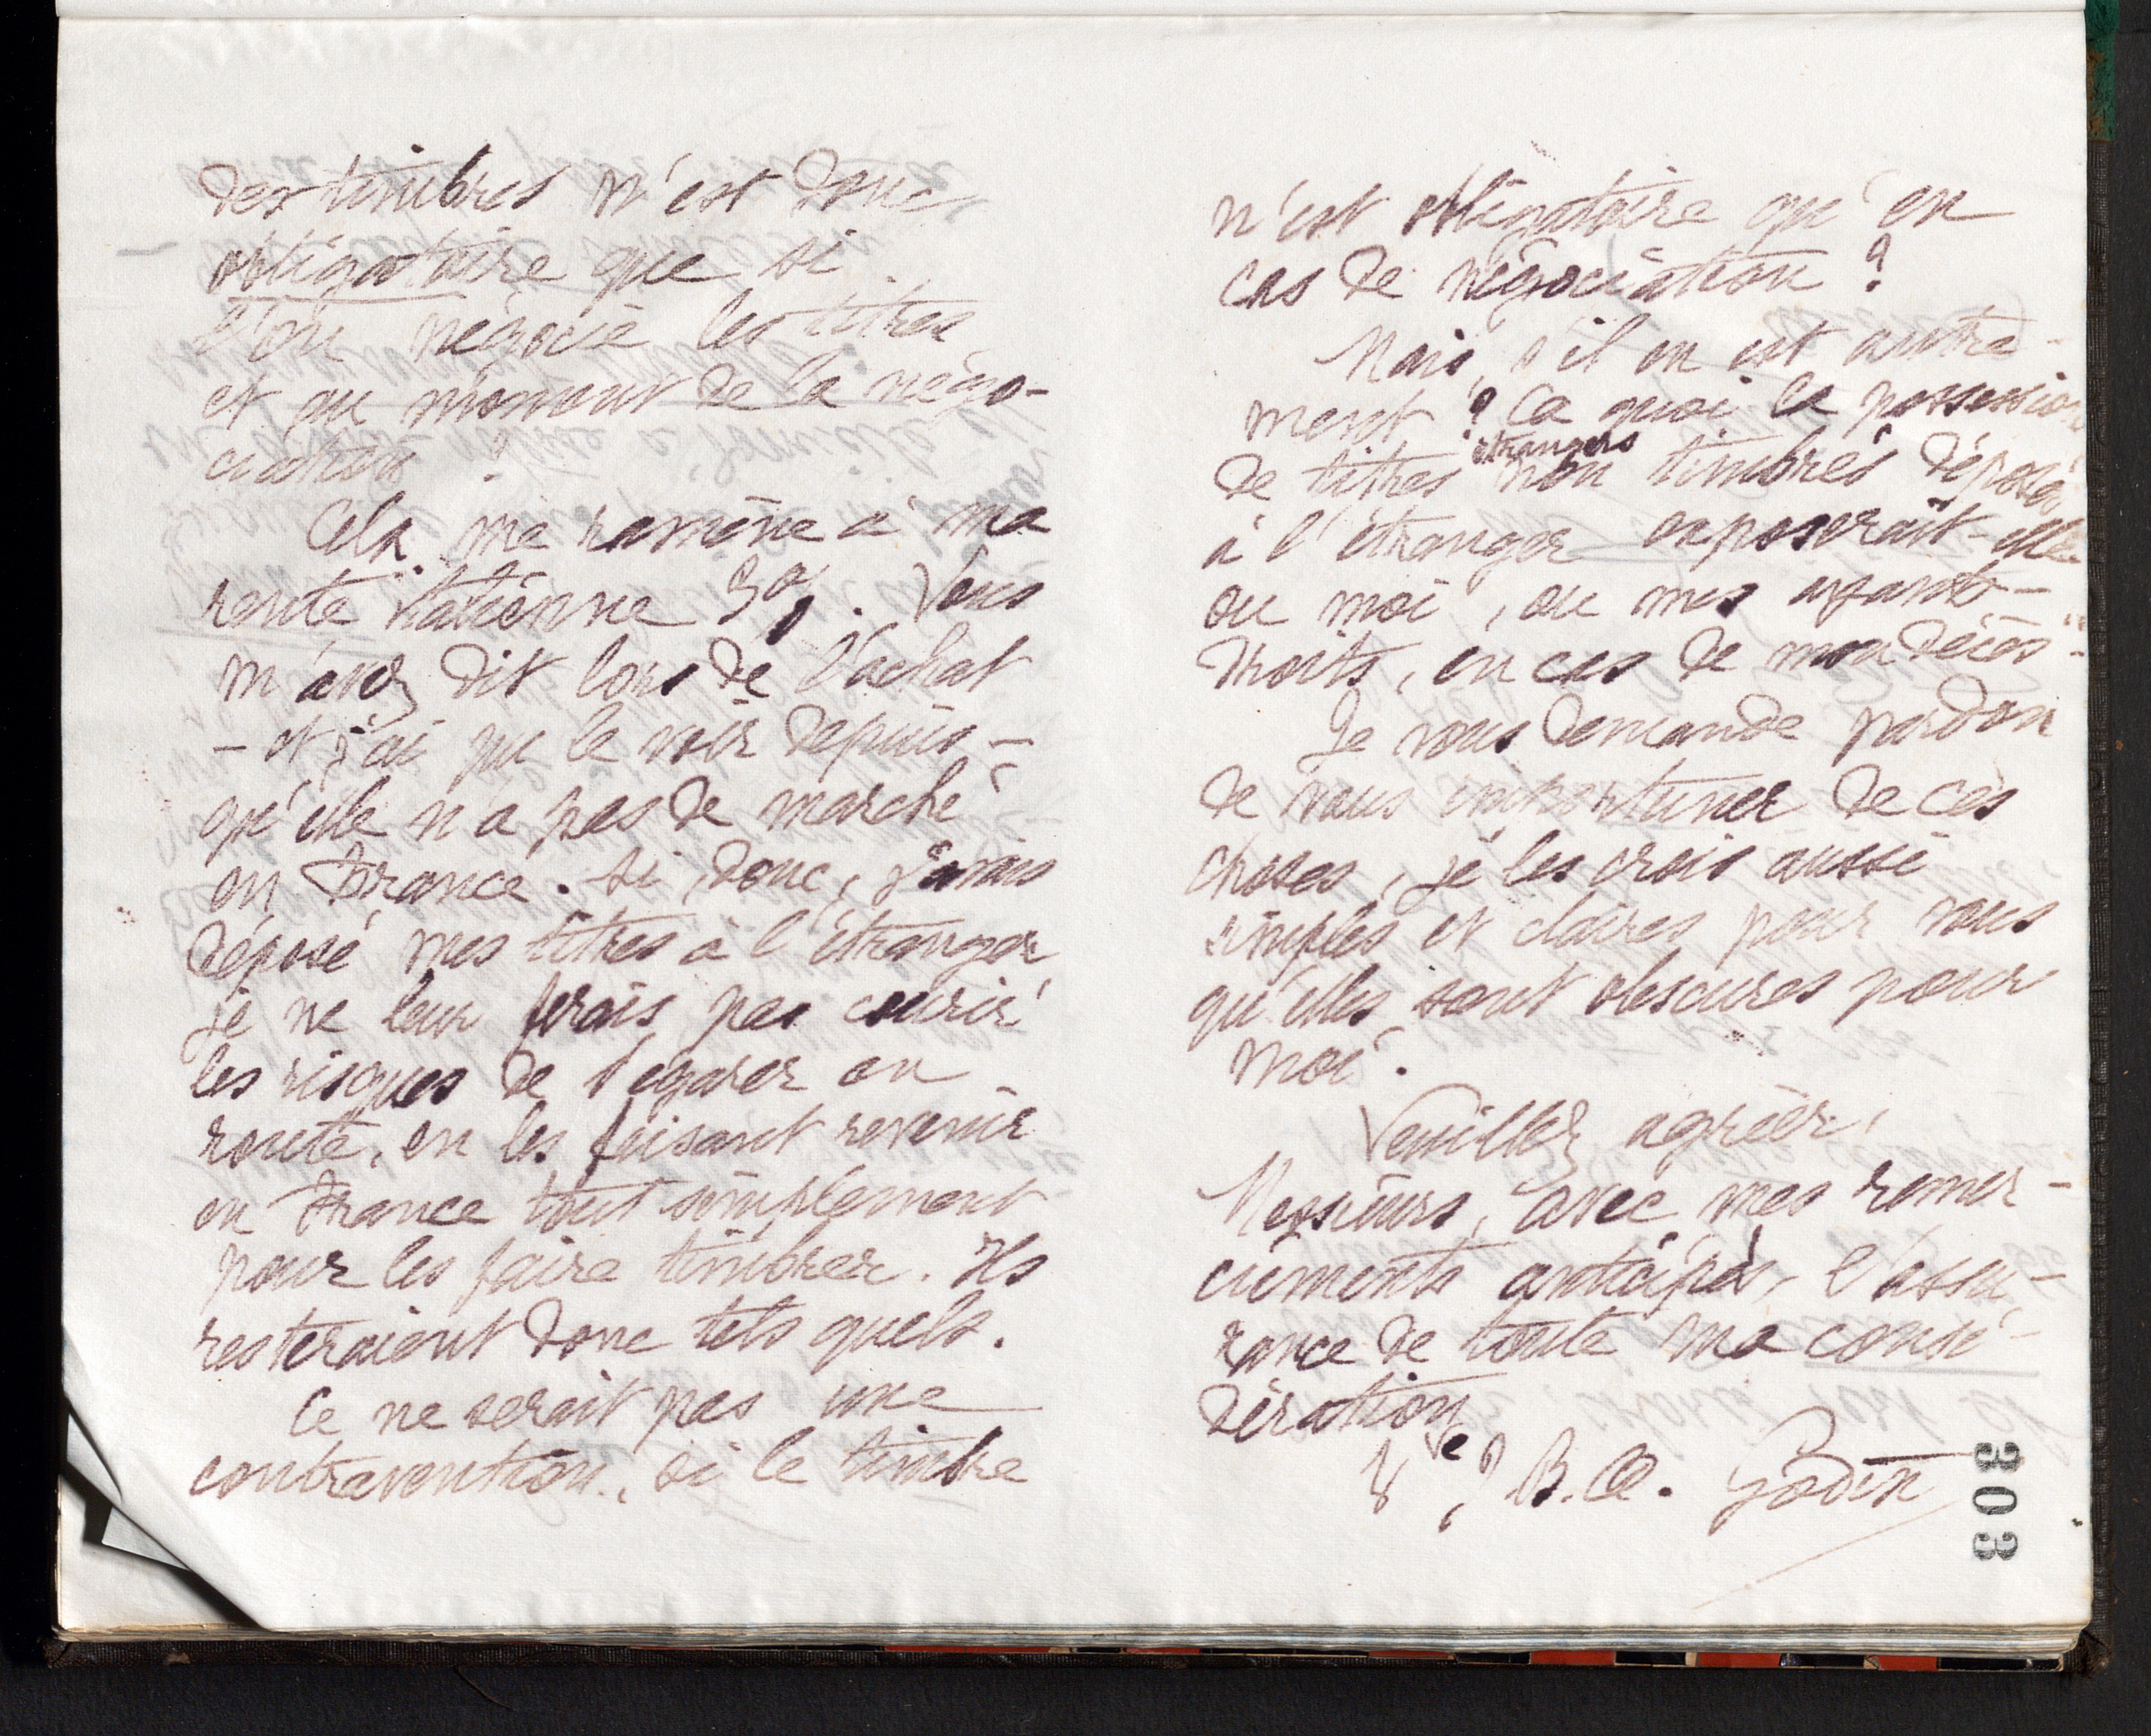 des timbres n'est donc
obligatoire que si
l'on négocie les titres
et au moment de la négo-
ciation ?
Cela me ramène à ma
rente italienne 3%. Vous
m'avez dit lors de l'achat
- et j'ai pu le voir depuis -
qu'elle n'a pas de marché
en France. Si, donc, j'avais
déposé mes titres à l'étranger
je ne leur ferais pas courir
les risques de s'égarer en
route, en les faisant revenir
en France tout simplement
pour les faire timbrer. Ils
resteraient donc tels quels.
Ce ne serait pas une
contravention, si le timbre
n'est obligatoire qu'en
cas de négociation ?
Mais, s'il en est autre-
ment ? Ca quoi la possession
étrangers
de titres non timbrés déposés
à l'étranger exposerait-elle
ou moi, ou mes ayants-
droits, en cas de mon décès
Je vous demande pardon
de vous importuner de ces
choses, je les crois aussi
simples et claires pour vous
qu'elles sont obscures pour
moi.
Veuillez agréer,
Messieurs, avec mes remer-
ciements anticipés, l'assu-
rance de toute ma consi-
dération
Ve J. B. A. Godin
303